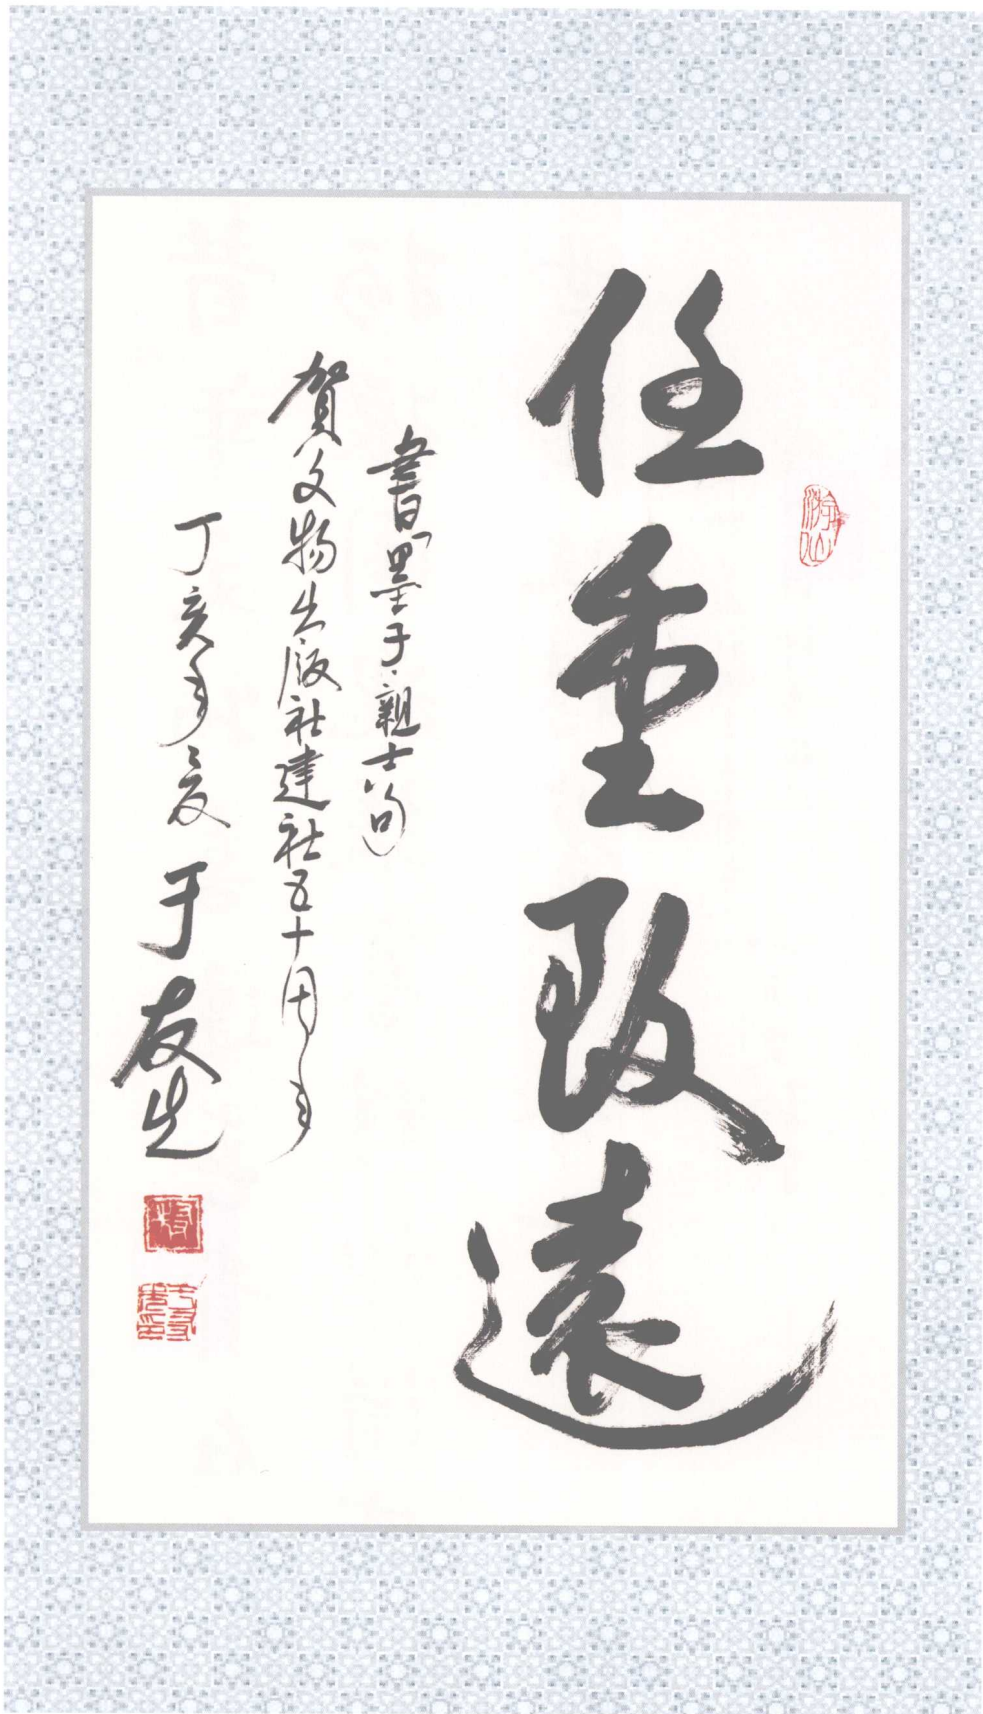 任重致遠
書“墨子·親士”句
賀文物出版社建社五十周年
丁亥年夏 于友先
于友先印